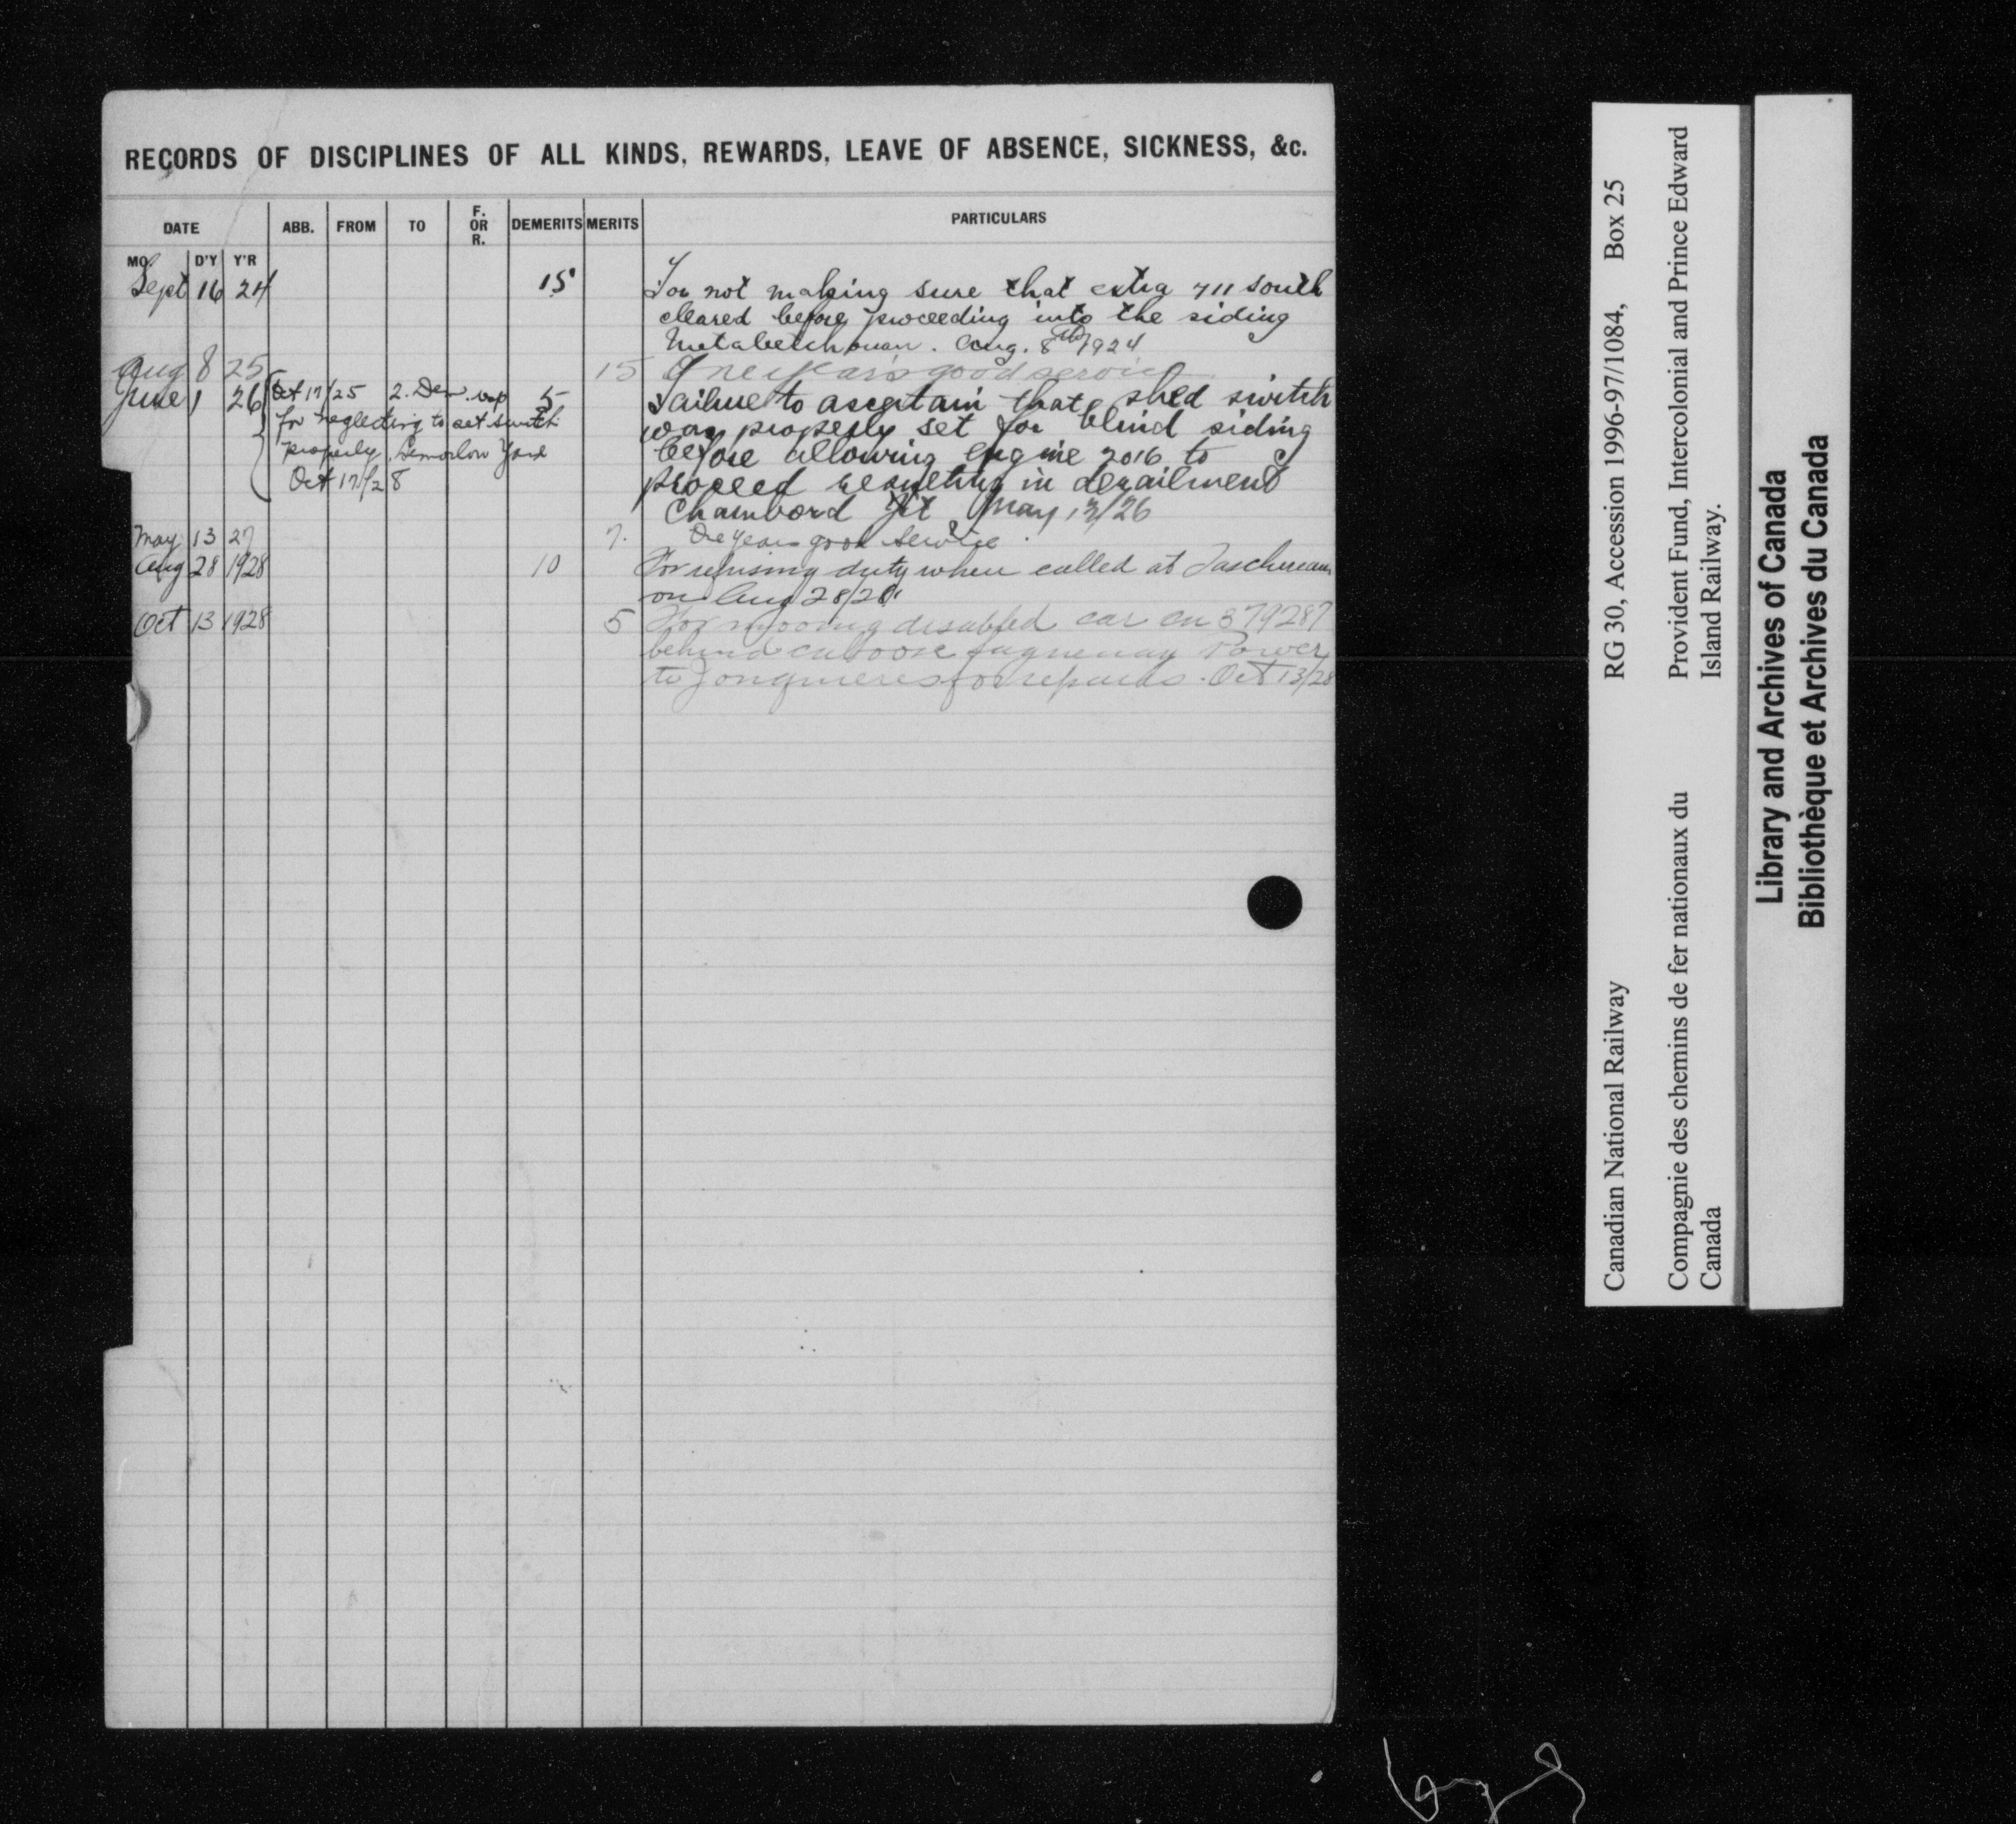 RECORDS OF DISCIPLINES OF ALL KINDS, REWARDS, LEAVE OF ABSENCE, SICKNESS, &c.
DATE ABB. FROM TO F. OR R. DEMERITS MERITS PARTICULARS
MO. D'Y Y'R
Sept 16 24 15 For not making sure that extra 711 south
cleared before proceeding into the siding
Metabetchouan. Aug. 8th 1924
Aug 8 25 15 One year's good service
June 1 26 5 Failure to ascertain that shed switch
was properly set for blind siding
before allowing engine 2016 to
proceed resulting in derailment
Chambord Jct May 13/26
Oct 17/25 2. Dem.
for neglecting to set switch
properly. Yard
Oct 17/28
May 13 27 7. One years good service.
Aug 28 1928 10 For refusing duty when called at Taschereau
on Aug 28/28
Oct 13 1928 5 For moving disabled car CN 379287
behind caboose Saguenay Power
to Jonquieres for repairs. Oct 13/28
Canadian National Railway RG 30, Accession 1996-97/1084, Box 25
Compagnie des chemins de fer nationaux du Provident Fund, Intercolonial and Prince Edward
Canada Island Railway.
Library and Archives of Canada
Bibliothèque et Archives du Canada